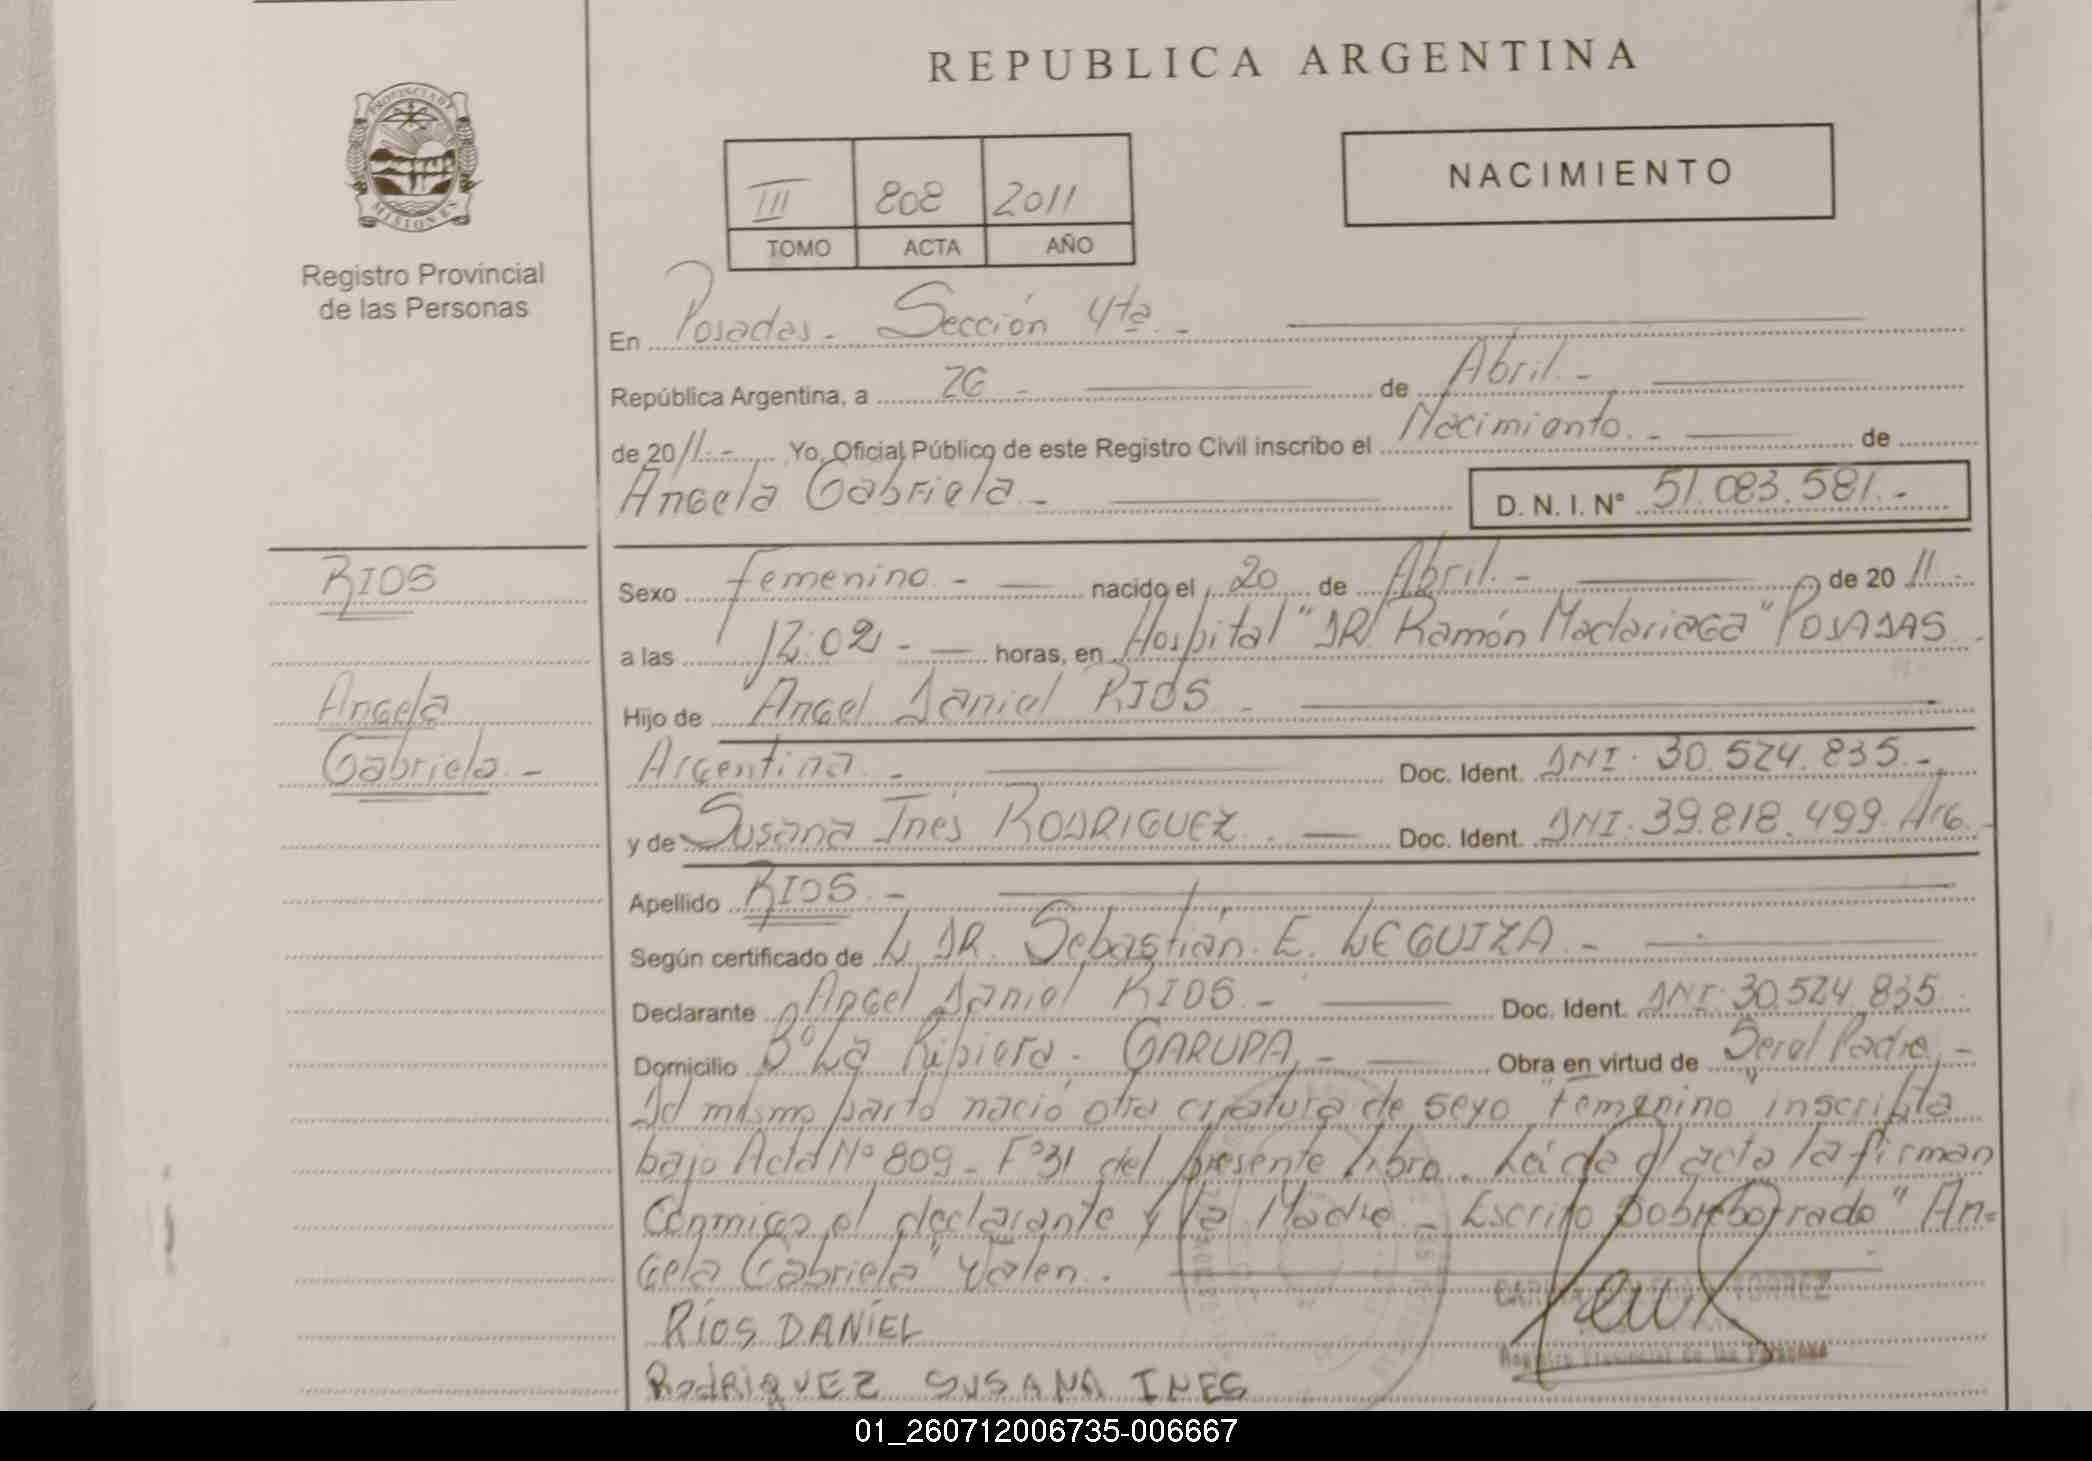 REPUBLICA ARGENTINA
PROVINCIA DE
MISIONES
Registro Provincial
de las Personas
III 808 2011
TOMO ACTA AÑO
NACIMIENTO
En Posadas - Sección 4ta. -
República Argentina, a 26 - de Abril. -
de 2011. - Yo, Oficial Público de este Registro Civil inscribo el Nacimiento. - de
Angela Gabriela - D. N. I. N° 51.083.581. -
RIOS
Angela
Gabriela. -
Sexo femenino. - nacido el 20 de Abril. - de 2011. -
a las 12:02 - horas, en Hospital "DR. Ramón Madariaga" POSADAS
Hijo de Angel Daniel RIOS -
Argentina. - Doc. Ident. DNI. 30.524.835. -
y de Susana Inés RODRIGUEZ. - Doc. Ident. DNI. 39.818.499. Arg.
Apellido RIOS. -
Según certificado de DR. Sebastián. E. LEGUIZA. -
Declarante Angel Daniel RIOS - Doc. Ident. DNI. 30.524.835
Domicilio B° La Ribiera. GARUPA, - Obra en virtud de Ser el Padre, -
Del mismo parto nació otra criatura de sexo "femenino" inscripta
bajo Acta N° 809 - F°31 del presente libro. Leída el acta la firman
Conmigo el declarante y la Madre - Escrito sobreborrado "An=
gela Gabriela" Valen.
RíOS DANIEL
RodRiguEZ SUSANA INES
Registro Provincial de las Personas
01_260712006735-006667